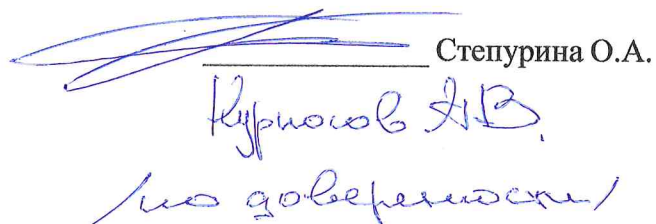 Степурина О.А.
Курносов А.В.
/по доверенности/